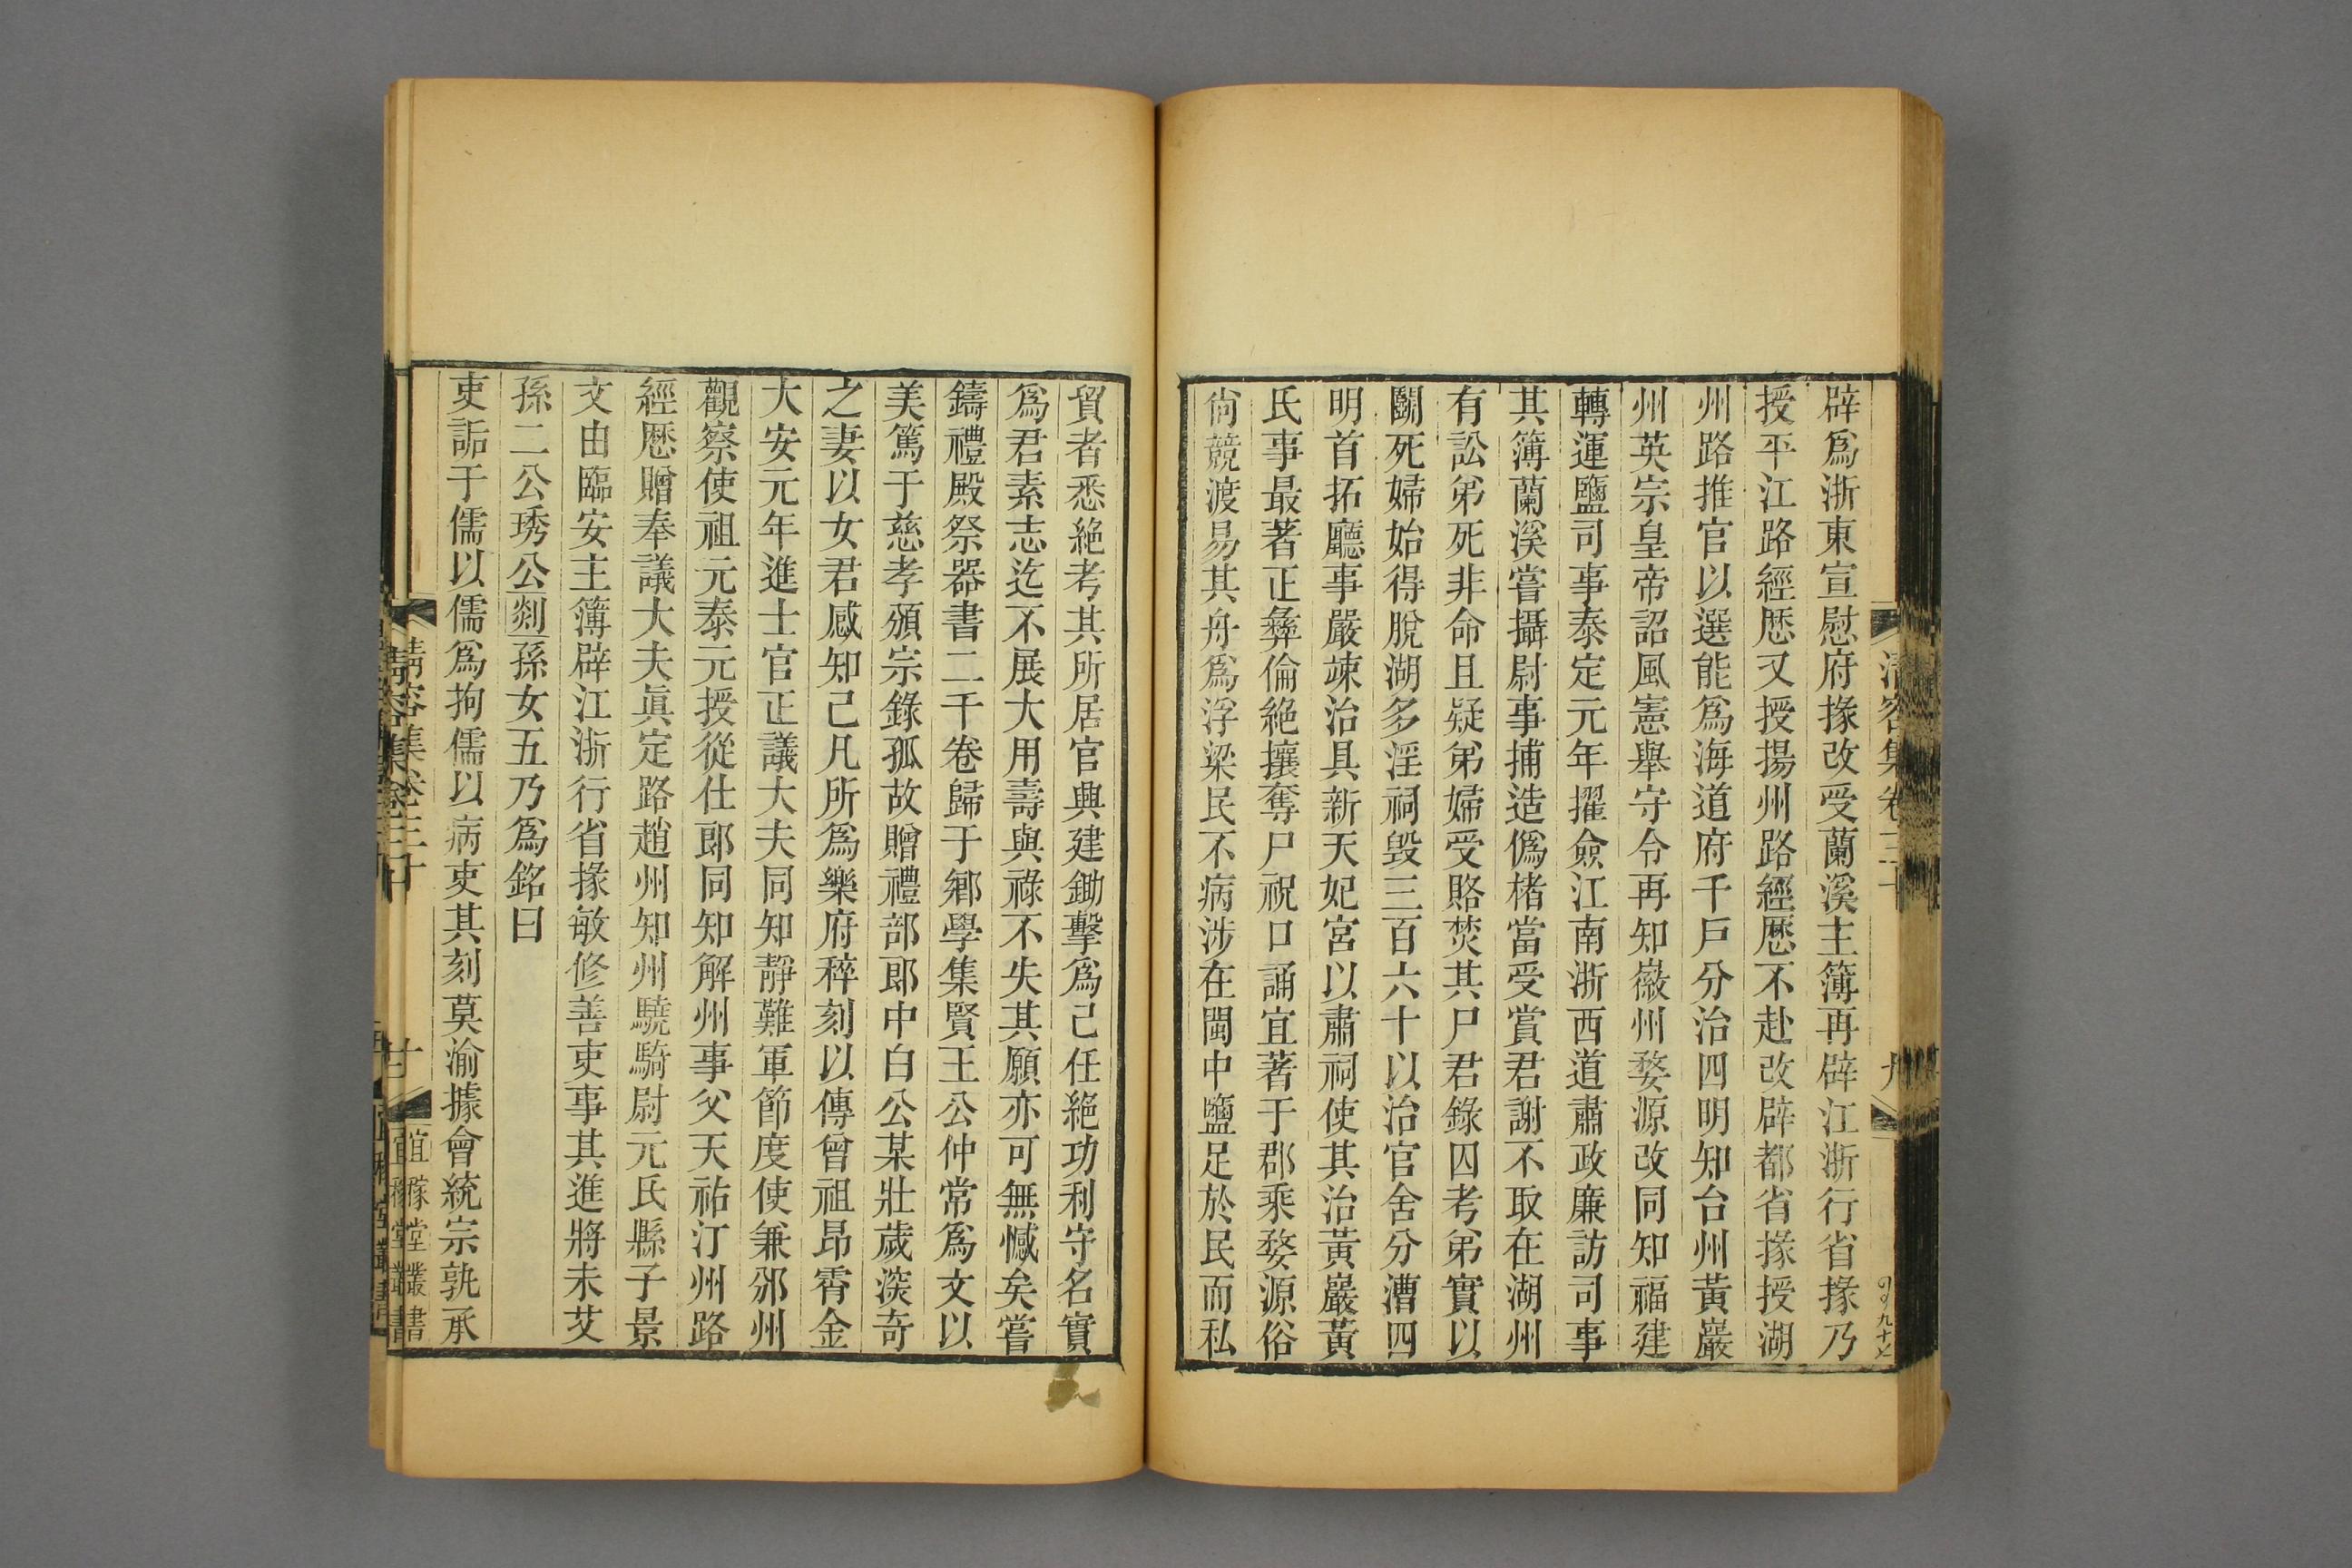 辟爲浙東宣慰府掾改受蘭溪主簿再辟江浙行省掾乃
授平江路經歷又授揚州路經歷不赴改辟都省掾授湖
州路推官以選能爲海道府千戶分治四明知台州黃巖
州英宗皇帝詔風憲舉守令再知徽州婺源改同知福建
轉運鹽司事泰定元年擢僉江南浙西道肅政廉訪司事
其簿蘭溪嘗攝尉事捕造僞楮當受賞君謝不取在湖州
有訟弟死非命且疑弟婦受賂焚其尸君錄囚考弟實以
鬭死婦始得脫湖多淫祠毀三百六十以治官舍分漕四
明首拓廳事嚴竦治具新天妃宮以肅祠使其治黃巖黃
氏事最著正彝倫絕攘奪尸祝口誦宜著于郡乘婺源俗
尙競渡易其舟爲浮梁民不病涉在閩中鹽足於民而私
貿者悉絕考其所居官興建鋤擊爲己任絕功利守名實
爲君素志迄不展大用壽與祿不失其願亦可無憾矣嘗
鑄禮殿祭器書二千卷歸于鄉學集賢王公仲常爲文以
美篤于慈孝頒宗錄孤故贈禮部郎中白公某壯歲淡奇
之妻以女君感知己凡所爲樂府稡刻以傳曾祖昂霄金
大安元年進士官正議大夫同知靜難軍節度使兼邠州
觀察使祖元泰元授從仕郎同知解州事父天祐汀州路
經歷贈奉議大夫眞定路趙州知州驍騎尉元氏縣子景
文由臨安主簿辟江浙行省掾敏修善吏事其進將未艾
孫二公琇公剡孫女五乃爲銘曰
吏詬于儒以儒爲拘儒以病吏其刻莫渝據會統宗孰承
清容集卷三十
廿
宜稼堂叢書